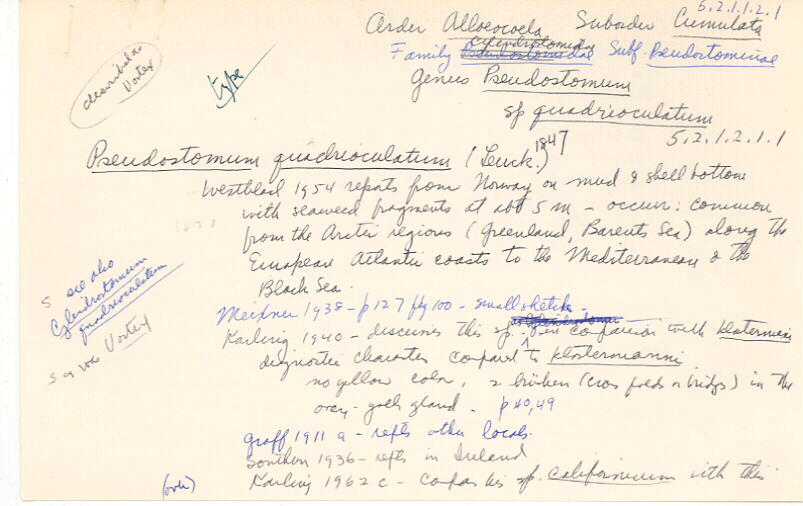 5.2.1.1.2.1
Order Alloeocoela Suborder Cumulata
Cylindrostomidae
Family Pseudostomidae Subf. Pseudostominae
Genus Pseudostomum
sp quadrioculatum
5.2.1.2.1.1
described as
Vortex
type
Pseudostomum quadrioculatum (Leuck.) 1847
Westblad 1954 repats from Norway on mud & shell bottom
with seaweed fragments at abt 5 m - occurr: common
from the Arctic regions (Greenland, Barents Sea) along the
European Atlantic coasts to the Mediterranean & the
Black Sea.
s see also
Cylindrostomum
quadrioculatum
Meixner 1938 - p 127 fig 100 - small sketch -
as Cylindrostomum
s as Vortex
Karling 1940 - discusses this sp. in comparison with klostermanni
diagnostic characters compared to klostermanni
no yellow color, 2 bridges (cross folds or bridges) in the
ovary - yolk gland. p 40, 49
Graff 1911 a - repts other locals.
Southern 1936 - repts in Ireland
(over)
Karling 1962 c - compares his sp. californicum with this